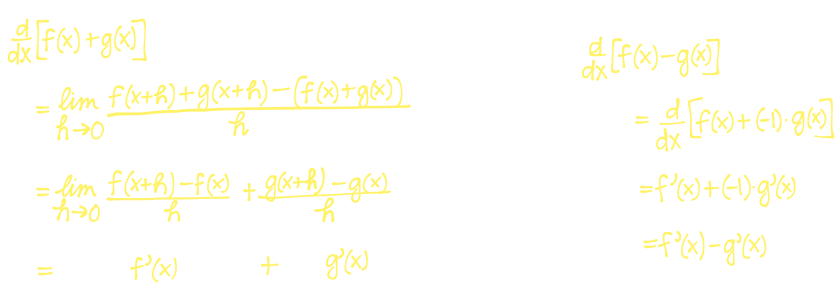 d/dx [f(x)+g(x)]
= lim h→0 (f(x+h)+g(x+h)−(f(x)+g(x)))/h
= lim h→0 (f(x+h)−f(x))/h + (g(x+h)−g(x))/h
= f'(x) + g'(x)
d/dx [f(x)−g(x)]
= d/dx [f(x)+(-1)·g(x)]
= f'(x)+(-1)·g'(x)
= f'(x)−g'(x)